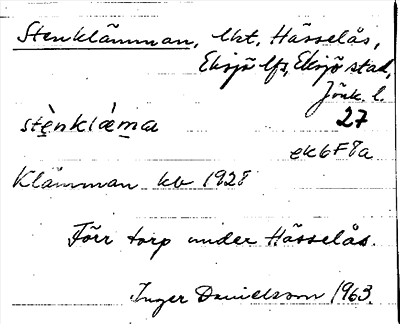 Stenklämman, lht, Hässelås,
Eksjö lfs, Eksjö stad,
Jönk. l.
27
stènklàma
ek6F8a
Klämman kb 1928
Förr torp under Hässelås.
Inger Danielsson 1963.